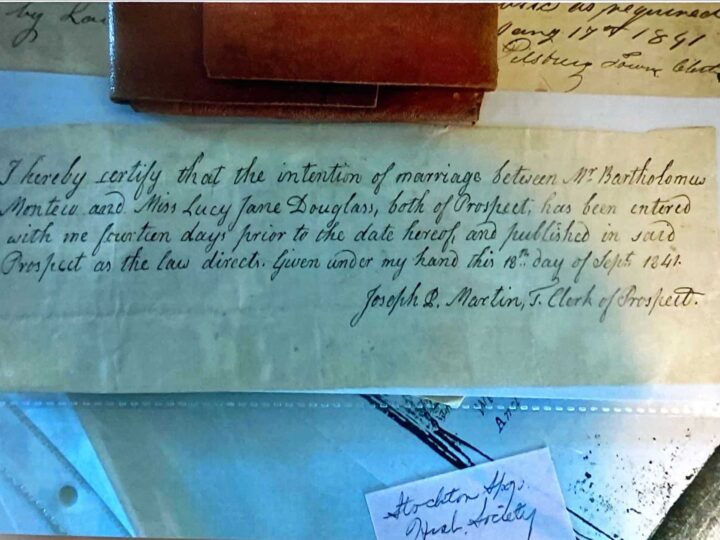 by Law
as required
Jany 17th 1841
Pitsburg Town Clerk
I hereby certify that the intention of marriage between Mr Bartholomus
Montew and Miss Lucy Jane Douglass, both of Prospect, has been entered
with me fourten days prior to the date hereof, and published in said
Prospect as the law directs. Given under my hand this 18th day of Sept. 1841.
Joseph P. Martin, T. Clerk of Prospect.
Stockton Spgs.
Hist. Society